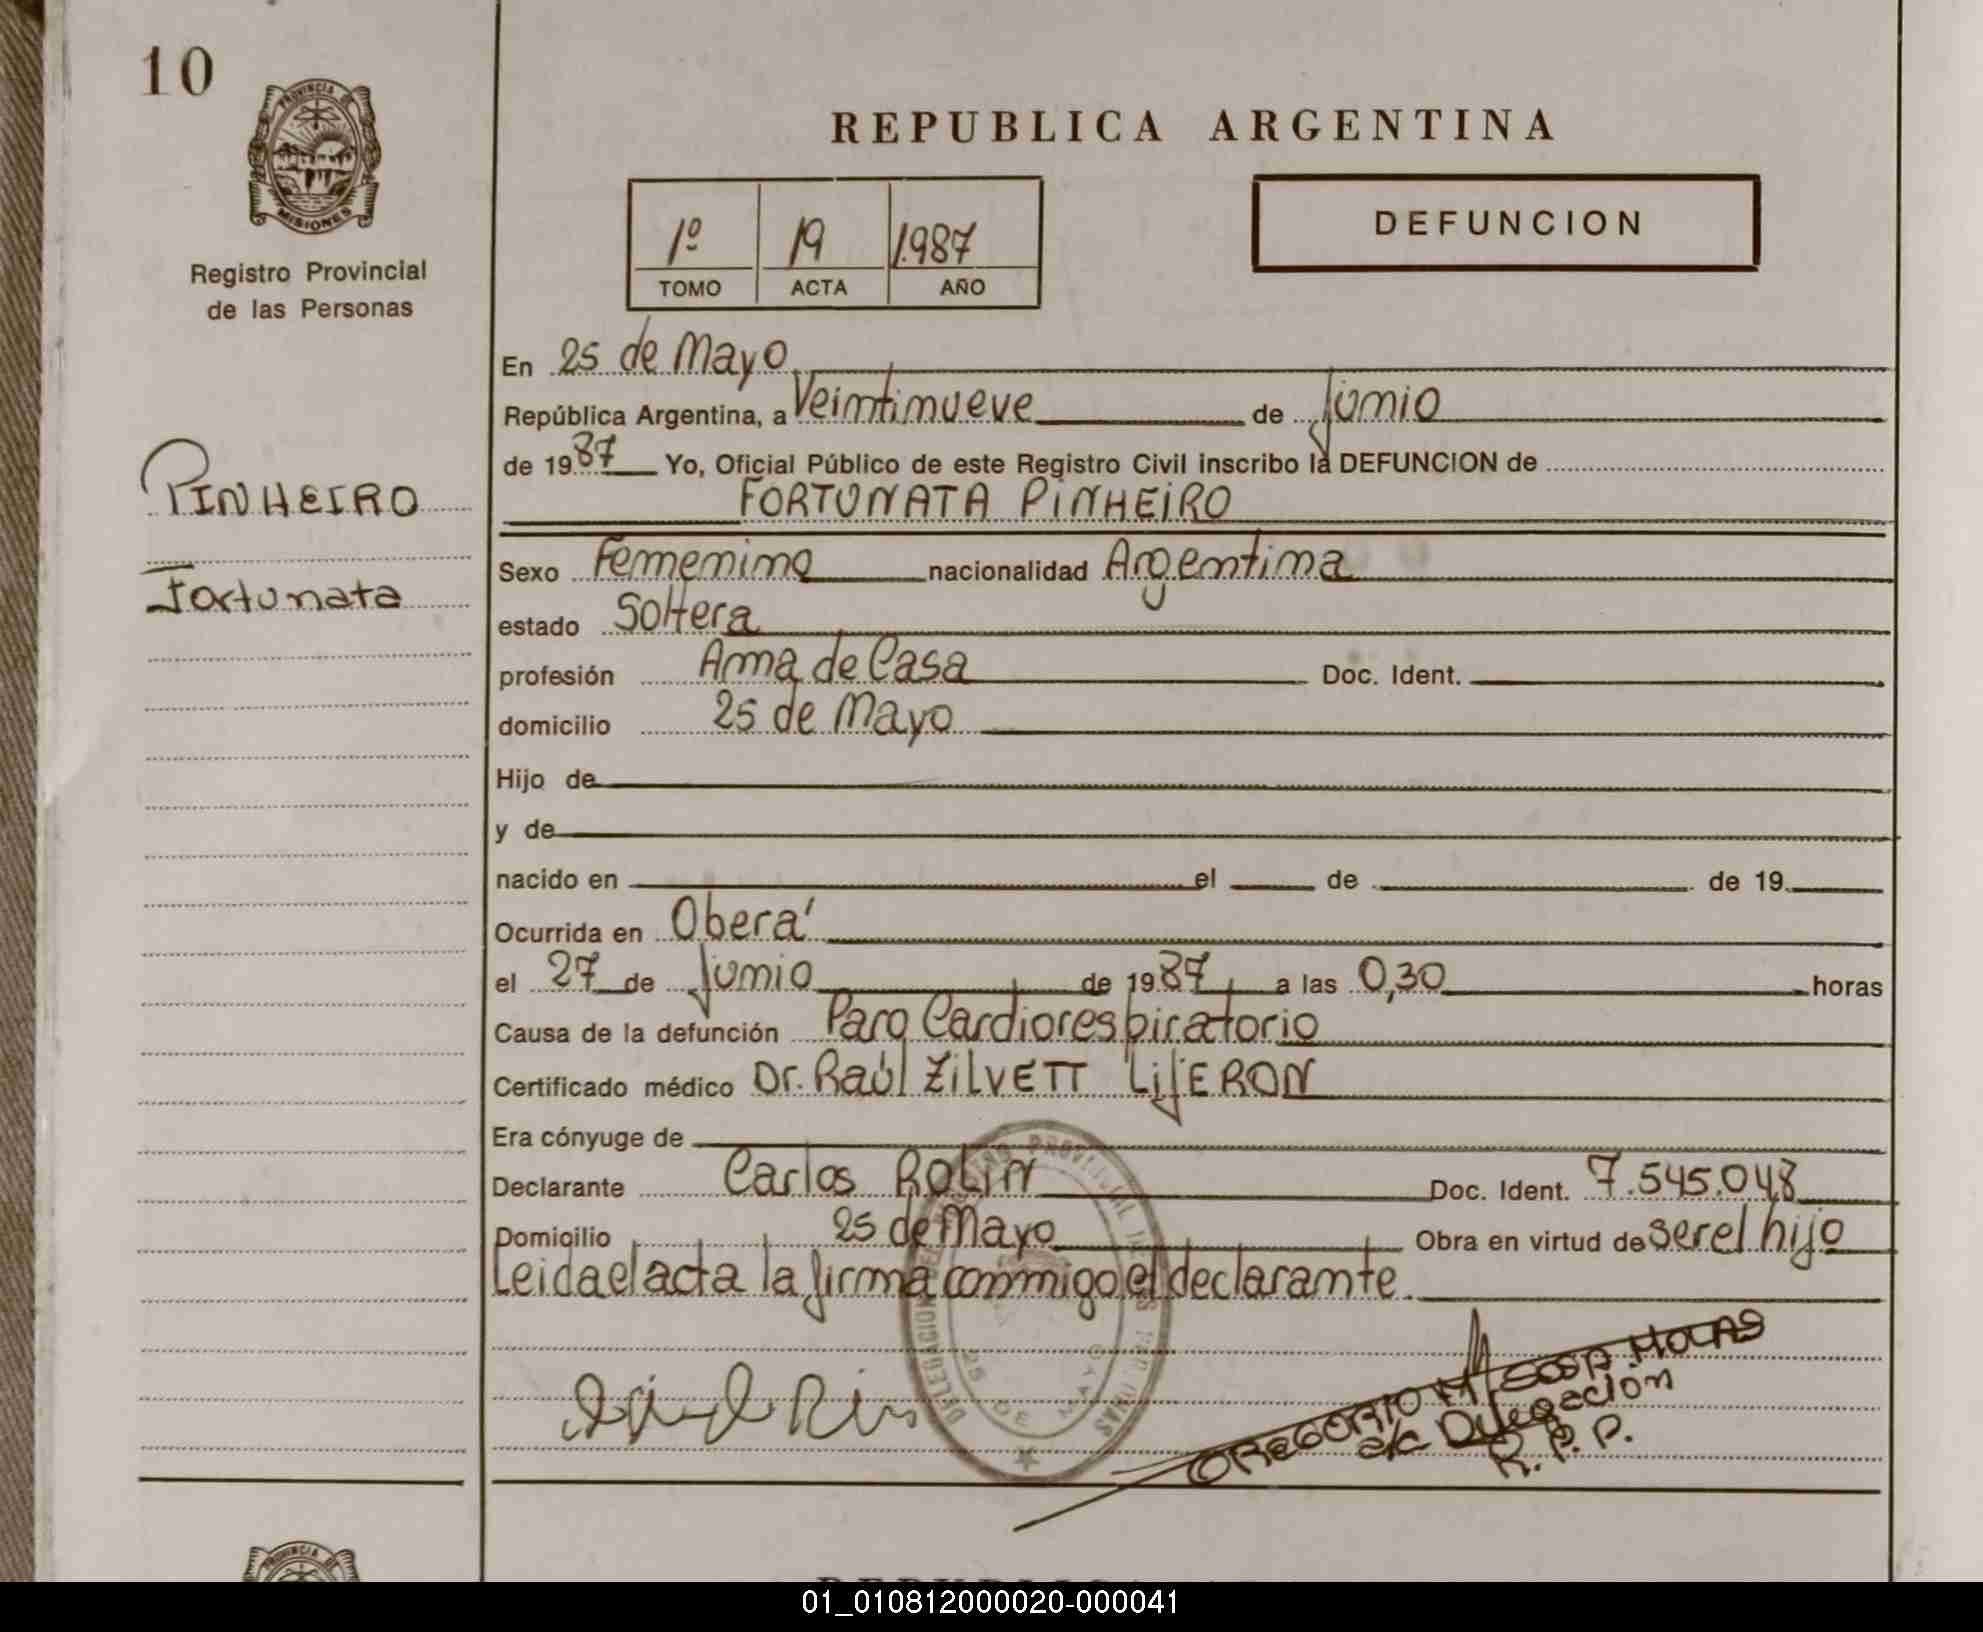 10
PROVINCIA DE
MISIONES
Registro Provincial
de las Personas
REPUBLICA ARGENTINA
1º 19 1.987
TOMO ACTA AÑO
DEFUNCION
En 25 de Mayo
República Argentina, a Veintinueve de junio
de 1987 Yo, Oficial Público de este Registro Civil inscribo la DEFUNCION de
PINHEIRO
FORTUNATA PINHEIRO
Fortunata
Sexo Femenino nacionalidad Argentina
estado Soltera
profesión Ama de Casa Doc. Ident.
domicilio 25 de Mayo
Hijo de
y de
nacido en el de de 19
Ocurrida en Oberá
el 27 de junio de 1987 a las 0,30 horas
Causa de la defunción Paro Cardiorespiratorio
Certificado médico Dr. Raúl ZILVETT LIJERON
Era cónyuge de
Declarante Carlos ROLIN Doc. Ident. 7.545.048
Domicilio 25 de Mayo Obra en virtud de ser el hijo
Leida el acta la firma conmigo el declarante.
25 DE MAYO
GREGORIO M. SOSA MOLAS
a/c Delegación
R. P. P.
PROVINCIA DE
01_010812000020-000041